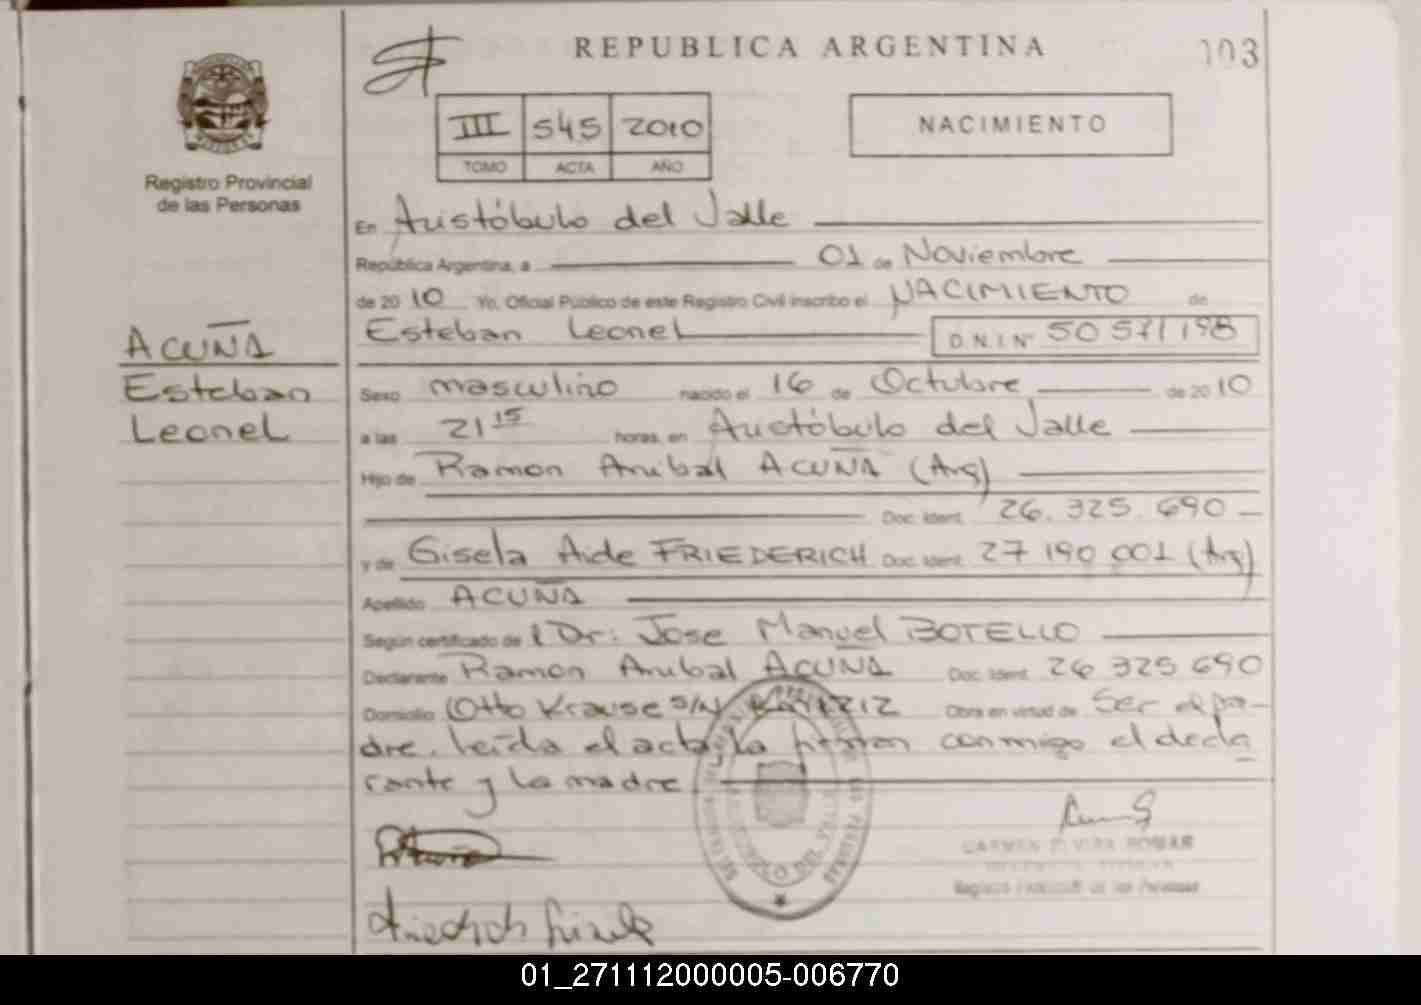 REPUBLICA ARGENTINA
103
III 545 2010
TOMO ACTA AÑO
NACIMIENTO
Registro Provincial
de las Personas
En Aristóbulo del Valle
República Argentina, a 01 de Noviembre
de 2010 Yo, Oficial Público de este Registro Civil inscribo el NACIMIENTO de
Esteban Leonel D.N.I Nº 50 571 198
ACUÑA
Esteban
Leonel
Sexo masculino nacido el 16 de Octubre de 2010
a las 21 15 horas, en Aristóbulo del Valle
Hijo de Ramon Anibal ACUÑA (Arg)
Doc. Ident. 26.325.690
y de Gisela Aide FRIEDERICH Doc. Ident. 27 190 001 (Arg)
Apellido ACUÑA
Según certificado de l Dr: Jose Manuel BOTELLO
Declarante Ramon Anibal ACUÑA Doc. Ident. 26 325 690
Domicilio Otto Krause S/N Obra en virtud de Ser el pa-
dre. leída el acta la firman conmigo el decla
rante y la madre
CARMEN ELVIRA ROMAN
Registro Provincial de las Personas
01_271112000005-006770